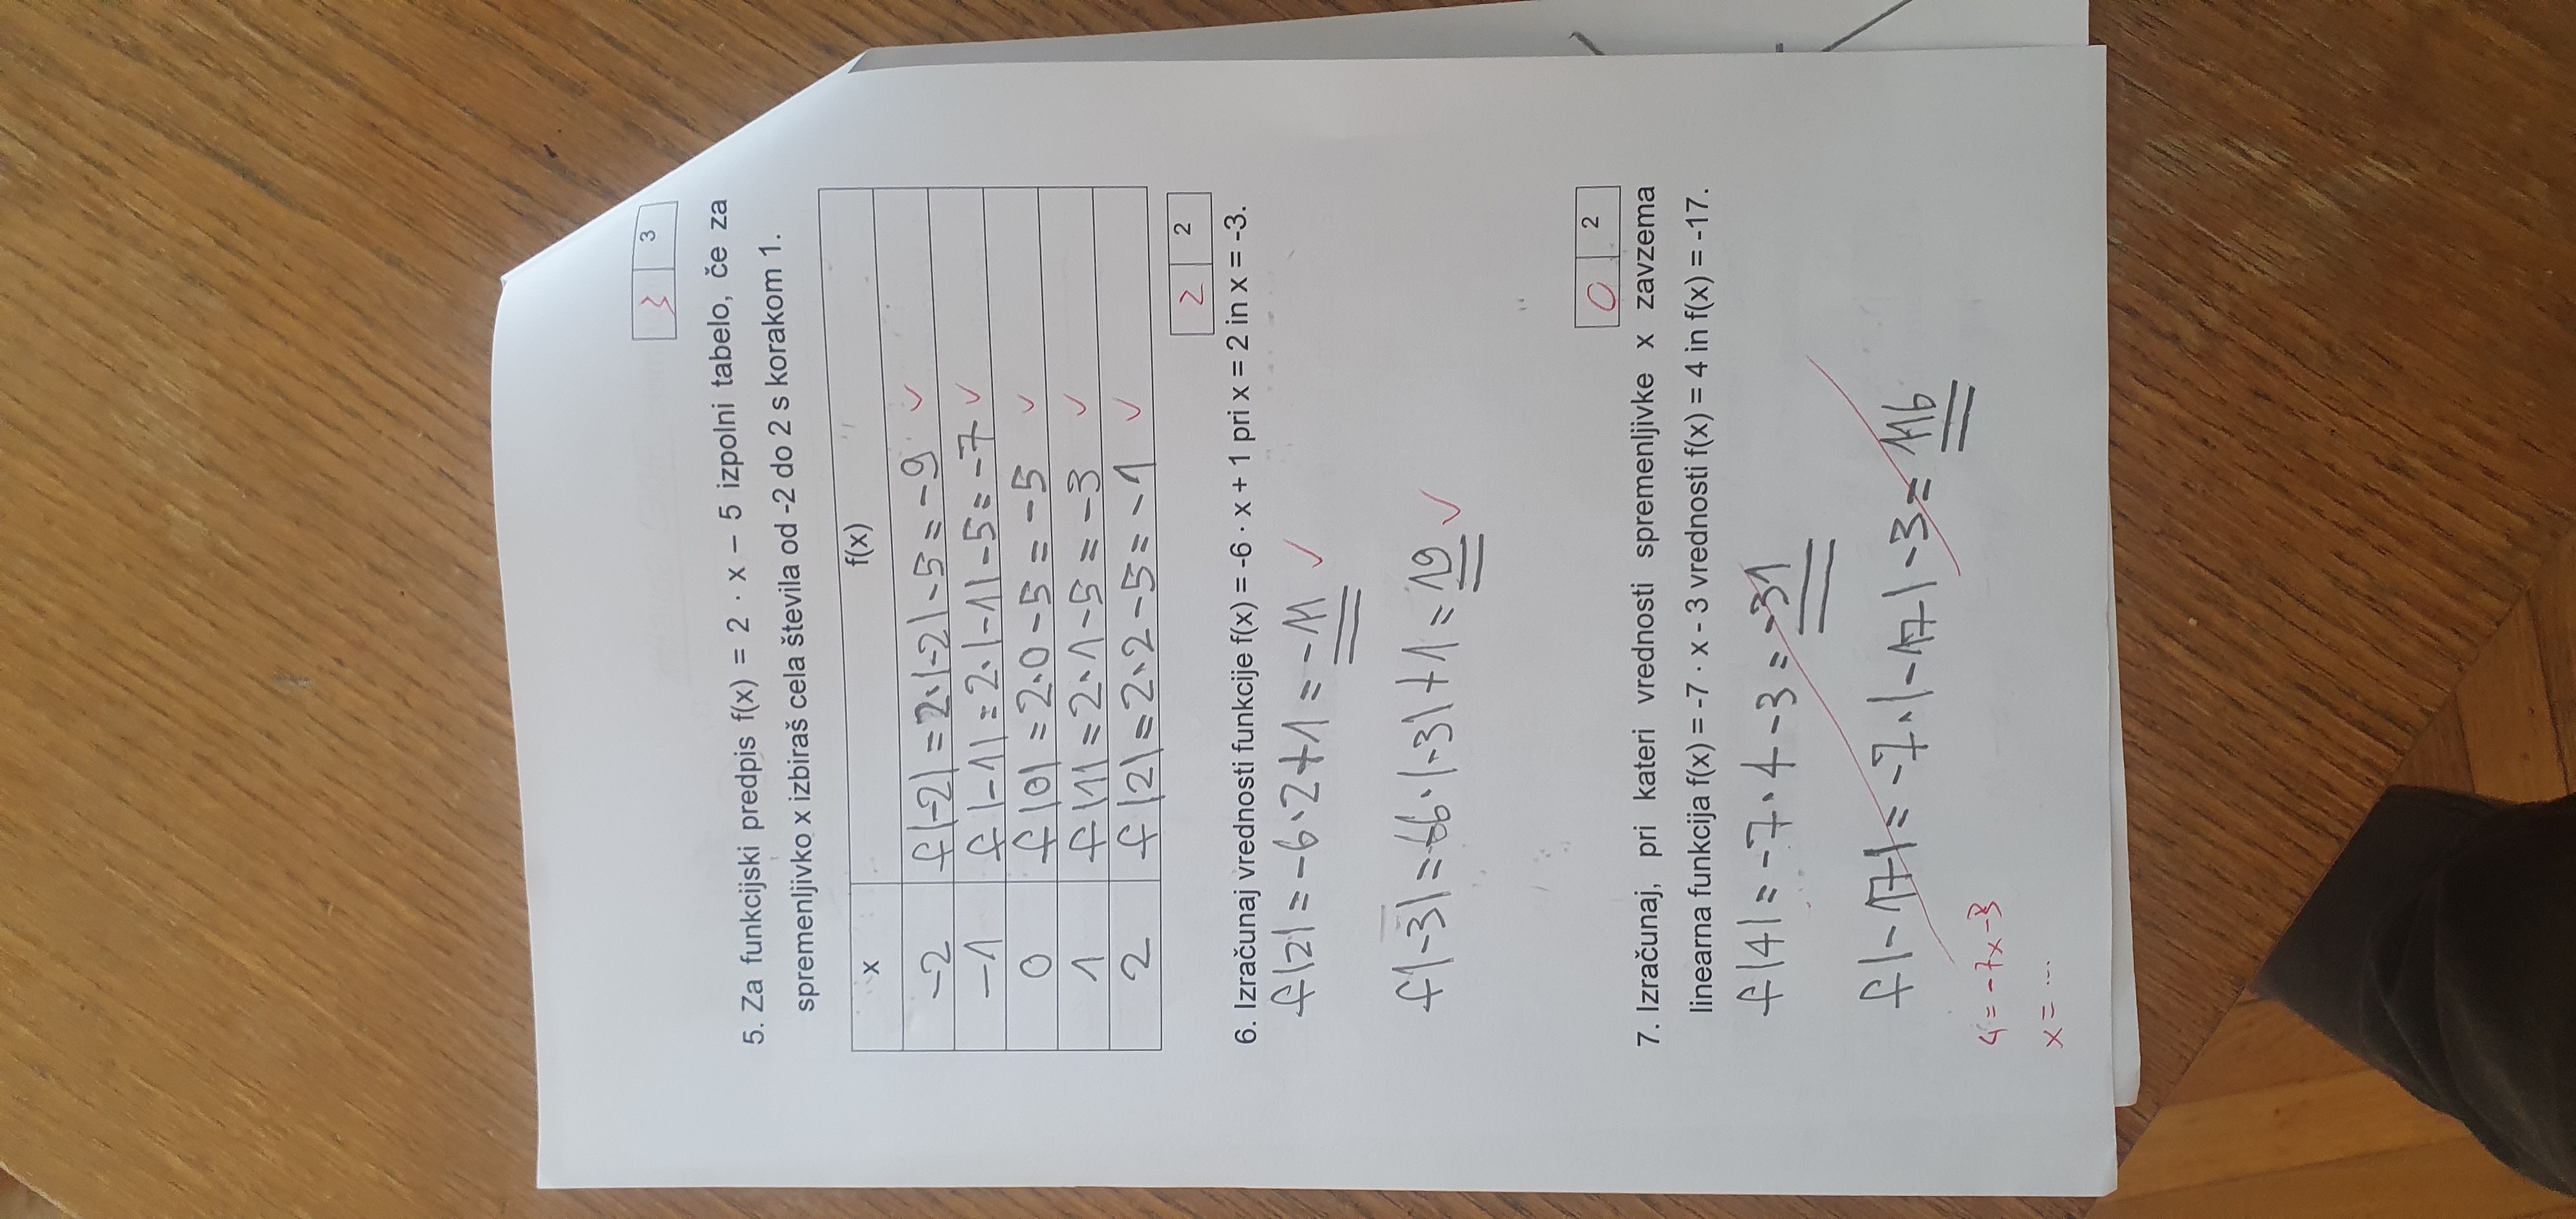 3 3
5. Za funkcijski predpis f(x) = 2 · x – 5 izpolni tabelo, če za
spremenljivko x izbiraš cela števila od -2 do 2 s korakom 1.
x f(x)
-2 f(-2) = 2·(-2) - 5 = -9 ✓
-1 f(-1) = 2·(-1) - 5 = -7 ✓
0 f(0) = 2·0 - 5 = -5 ✓
1 f(1) = 2·1 - 5 = -3 ✓
2 f(2) = 2·2 - 5 = -1 ✓
2 2
6. Izračunaj vrednosti funkcije f(x) = -6 · x + 1 pri x = 2 in x = -3.
f(2) = -6·2+1 = -11 ✓
f(-3) = -6·(-3)+1 = 19 ✓
0 2
7. Izračunaj, pri kateri vrednosti spremenljivke x zavzema
linearna funkcija f(x) = -7 · x - 3 vrednosti f(x) = 4 in f(x) = -17.
f(4) = -7·4-3 = -31
f(-17) = -7·(-17)-3 = 116
4 = -7x-3
x = ...